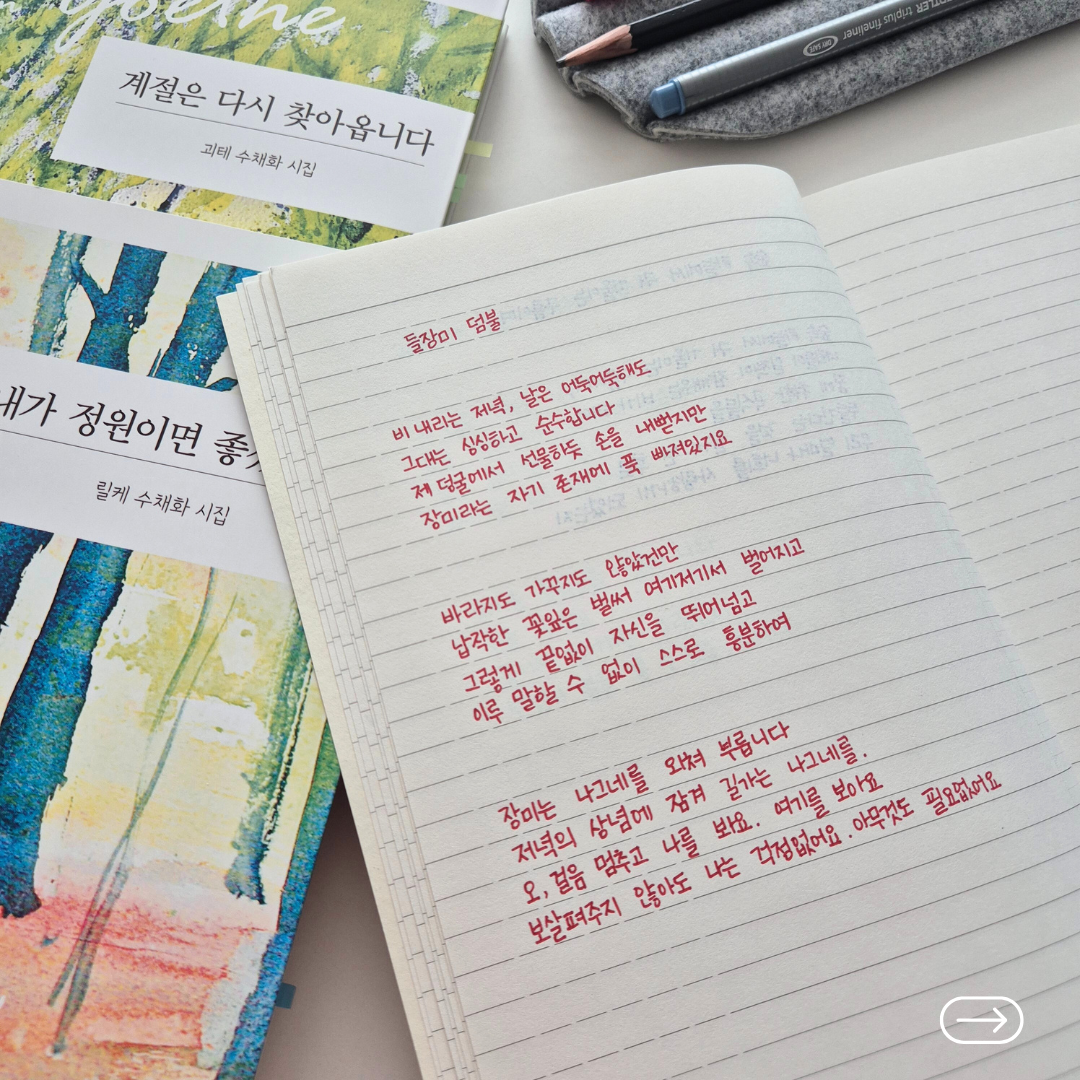 goethe
계절은 다시 찾아옵니다
괴테 수채화 시집
내가 정원이면 좋
릴케 수채화 시집
STAEDTLER triplus fineliner
DRY SAFE
들장미 덤불
비 내리는 저녁, 날은 어둑어둑해도
그대는 싱싱하고 순수합니다
제 덩굴에서 선물하듯 손을 내뻗지만
장미라는 자기 존재에 푹 빠져있지요
바라지도 가꾸지도 않았건만
납작한 꽃잎은 벌써 여기저기서 벌어지고
그렇게 끝없이 자신을 뛰어넘고
이루 말할 수 없이 스스로 흥분하여
장미는 나그네를 외쳐 부릅니다
저녁의 상념에 잠겨 길가는 나그네를.
오, 걸음 멈추고 나를 봐요. 여기를 보아요
보살펴주지 않아도 나는 걱정없어요. 아무것도 필요없어요